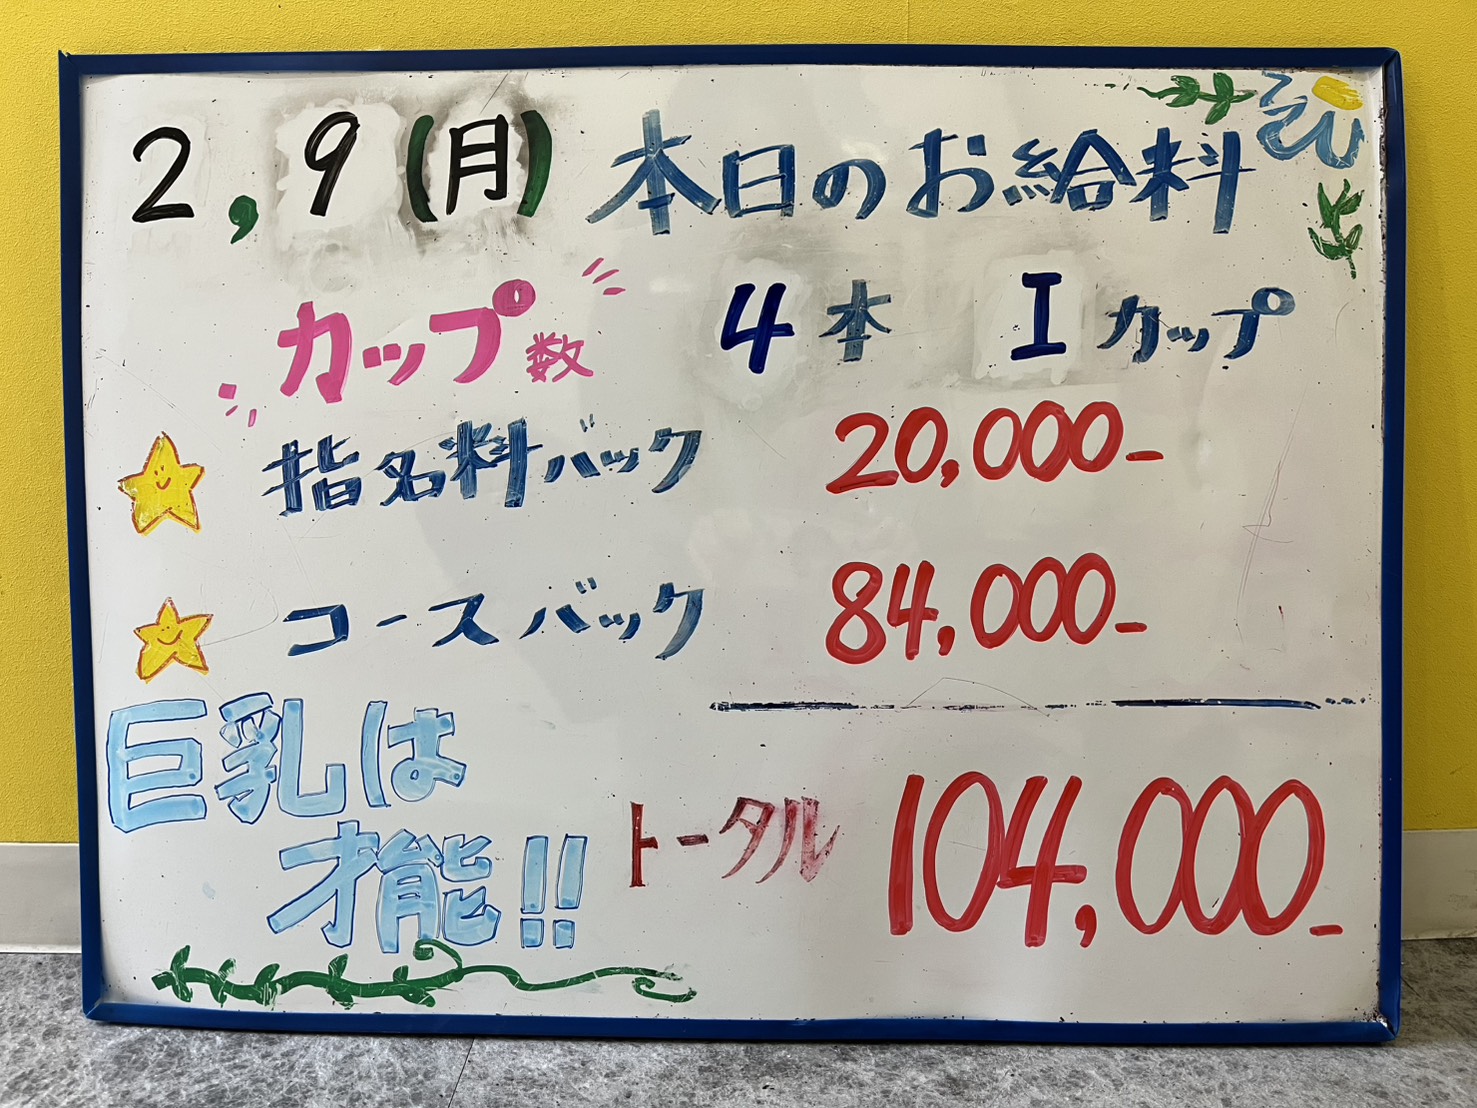 2,9(月) 本日のお給料
カップ数 4本 Iカップ
指名料バック 20,000-
コースバック 84,000-
巨乳は
才能!!
トータル 104,000-